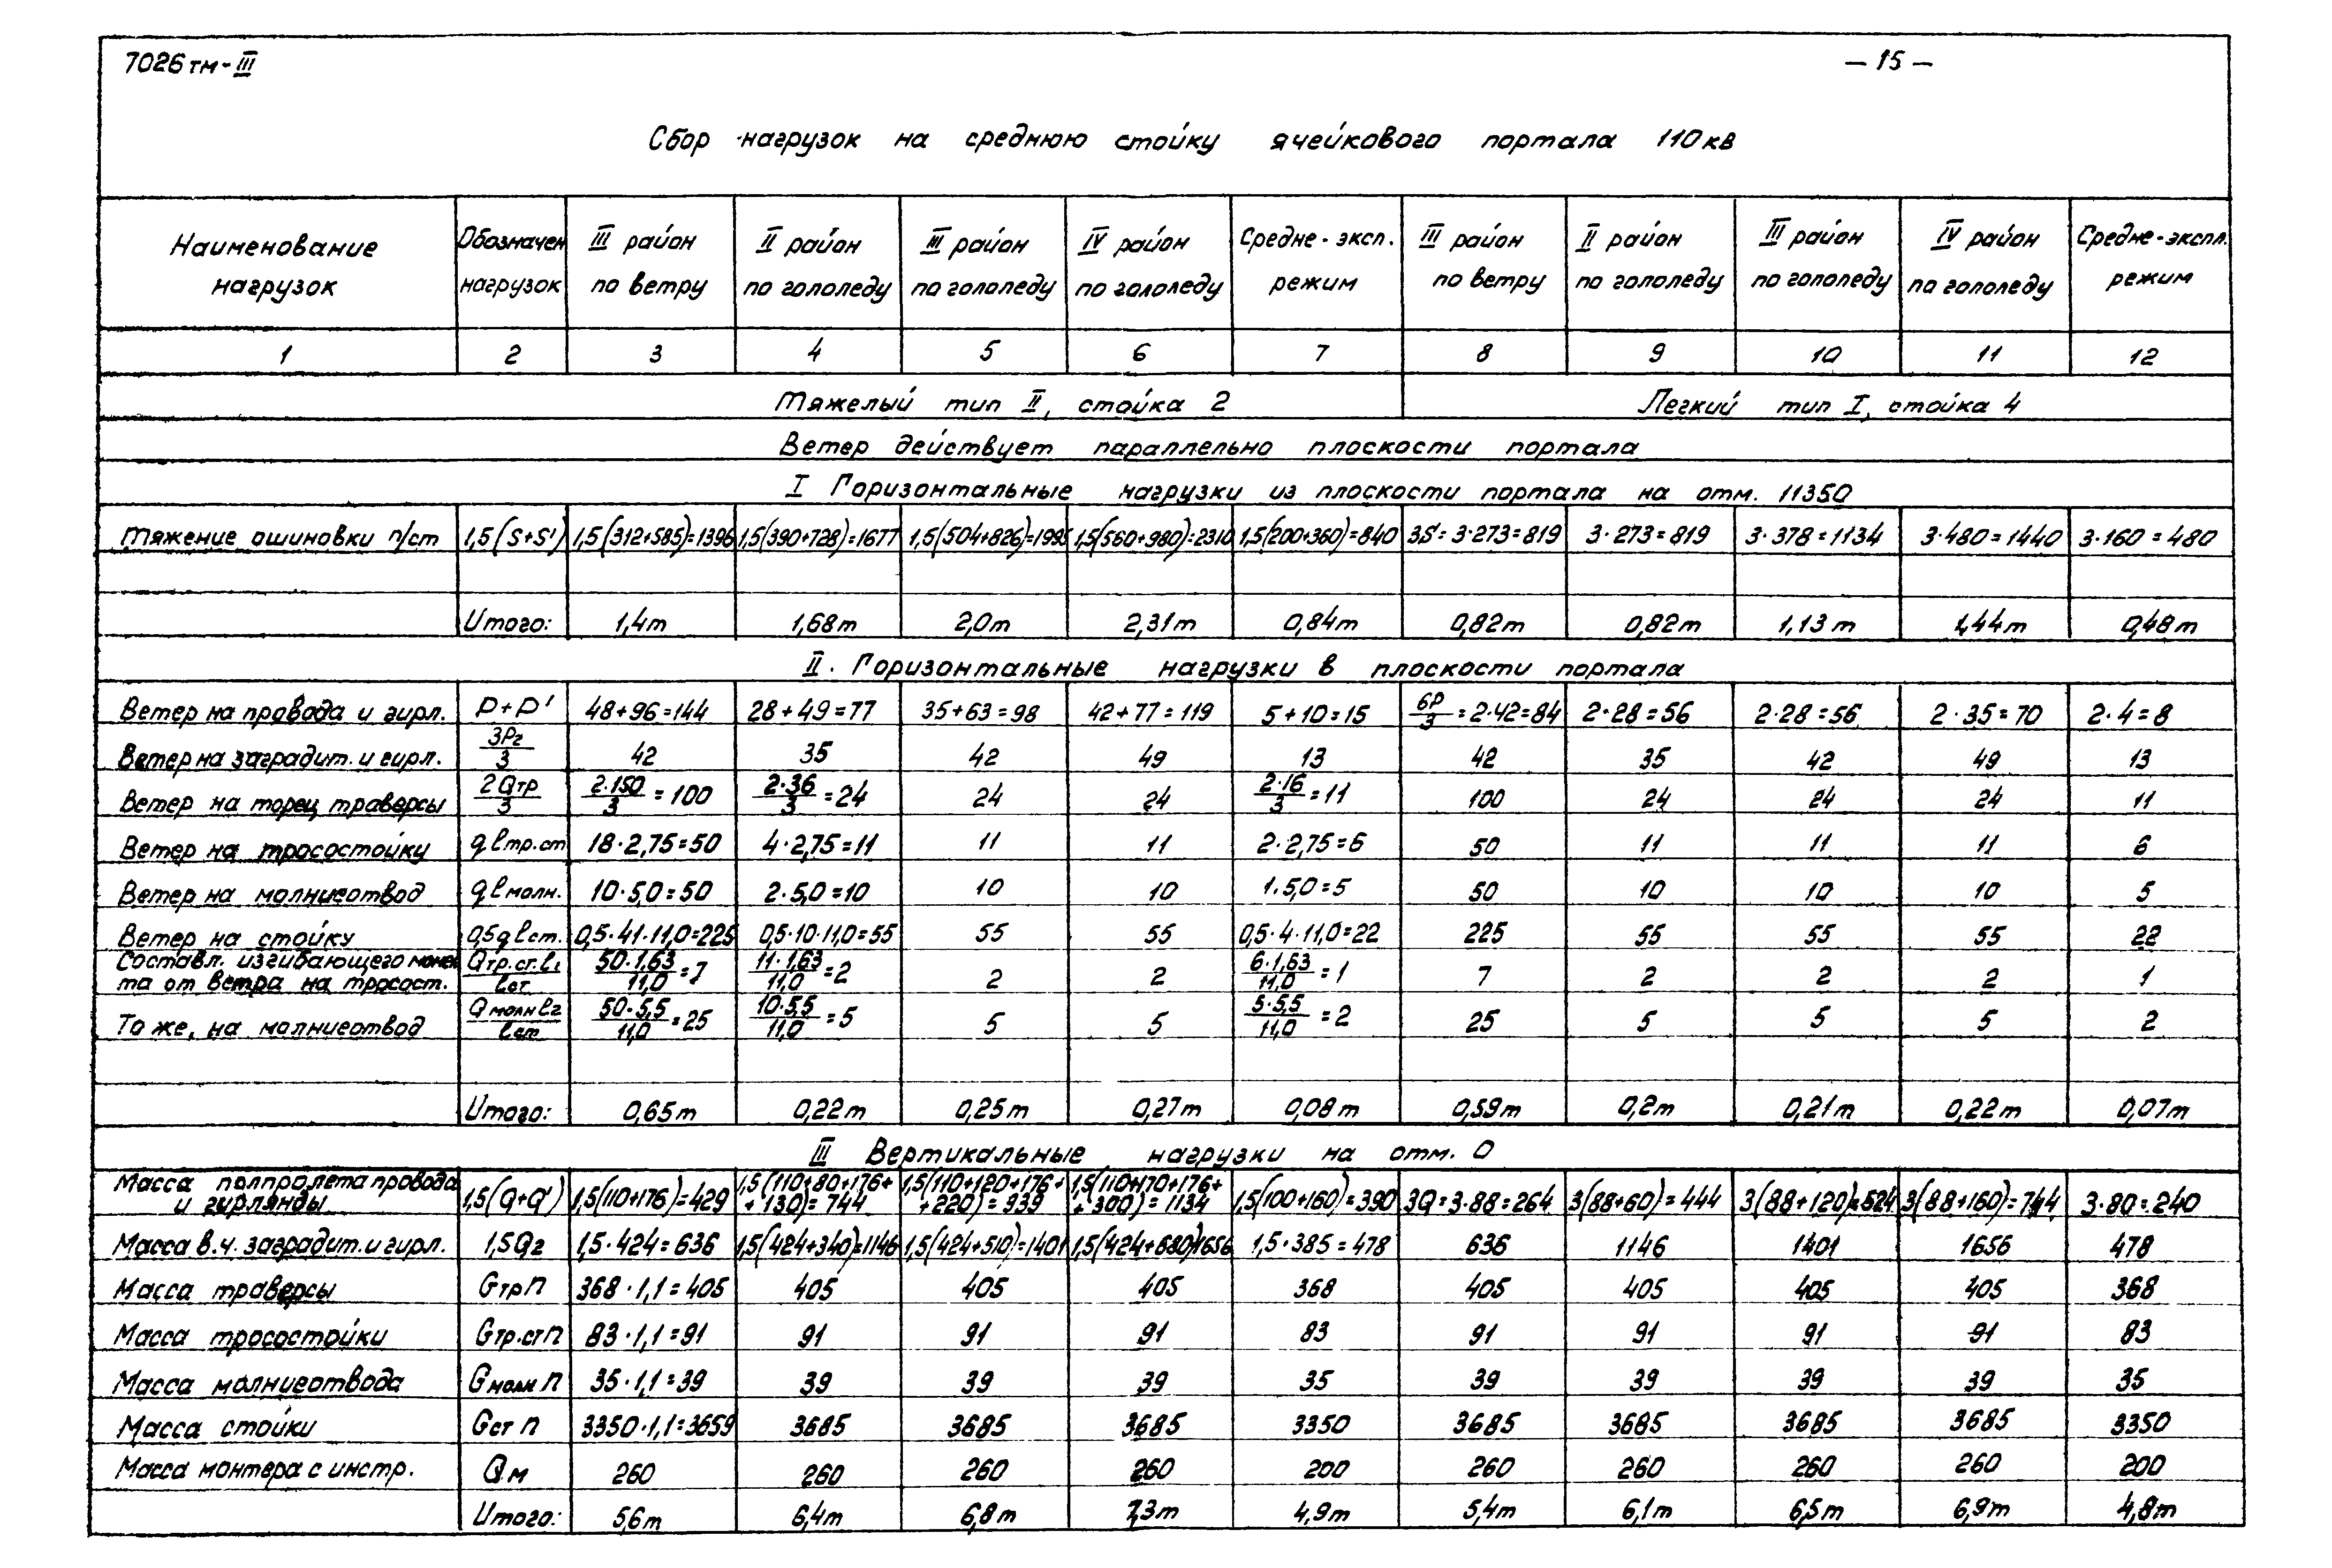 7026тм-III
— 15 —
Сбор нагрузок на среднюю стойку ячейкового портала 110 кв
Наименование нагрузок | Обозначен нагрузок | III район по ветру | II район по гололеду | III район по гололеду | IV район по гололеду | Средне-эксп. режим | III район по ветру | II район по гололеду | III район по гололеду | IV район по гололеду | Средне-экспл. режим
1 | 2 | 3 | 4 | 5 | 6 | 7 | 8 | 9 | 10 | 11 | 12
Тяжелый тип II, стойка 2 | Легкий тип I, стойка 4
Ветер действует параллельно плоскости портала
I Горизонтальные нагрузки из плоскости портала на отм. 11350
Тяжение ошиновки п/ст | 1,5(S+S') | 1,5(312+585)=1396 | 1,5(390+728)=1677 | 1,5(504+826)=1995 | 1,5(560+980)=2310 | 1,5(200+360)=840 | 3S=3·273=819 | 3·273=819 | 3·378=1134 | 3·480=1440 | 3·160=480
Итого: | 1,4т | 1,68т | 2,0т | 2,31т | 0,84т | 0,82т | 0,82т | 1,13т | 1,44т | 0,48т
II. Горизонтальные нагрузки в плоскости портала
Ветер на провода и гирл. | P+P' | 48+96=144 | 28+49=77 | 35+63=98 | 42+77=119 | 5+10=15 | 6P/3=2·42=84 | 2·28=56 | 2·28=56 | 2·35=70 | 2·4=8
Ветер на заградит. и гирл. | 3Pг/3 | 42 | 35 | 42 | 49 | 13 | 42 | 35 | 42 | 49 | 13
Ветер на торец траверсы | 2Qтр/3 | 2·150/3=100 | 2·36/3=24 | 24 | 24 | 2·16/3=11 | 100 | 24 | 24 | 24 | 11
Ветер на тросостойку | qlтр.ст | 18·2,75=50 | 4·2,75=11 | 11 | 11 | 2·2,75=6 | 50 | 11 | 11 | 11 | 6
Ветер на молниеотвод | qlмолн. | 10·5,0=50 | 2·5,0=10 | 10 | 10 | 1·5,0=5 | 50 | 10 | 10 | 10 | 5
Ветер на стойку | 0,5qlст. | 0,5·41·11,0=225 | 0,5·10·11,0=55 | 55 | 55 | 0,5·4·11,0=22 | 225 | 55 | 55 | 55 | 22
Составл. изгибающего момента от ветра на тросост. | Qтр.ст.l1/lст | 50·1,63/11,0=7 | 11·1,63/11,0=2 | 2 | 2 | 6·1,63/11,0=1 | 7 | 2 | 2 | 2 | 1
То же, на молниеотвод | Qмолн l2/lст | 50·5,5/11,0=25 | 10·5,5/11,0=5 | 5 | 5 | 5·5,5/11,0=2 | 25 | 5 | 5 | 5 | 2
Итого: | 0,65т | 0,22т | 0,25т | 0,27т | 0,08т | 0,59т | 0,2т | 0,21т | 0,22т | 0,07т
III Вертикальные нагрузки на отм. 0
Масса полпролета провода и гирлянды | 1,5(Q+Q') | 1,5(110+176)=429 | 1,5(110+80+176+130)=744 | 1,5(110+120+176+220)=939 | 1,5(110+170+176+300)=1134 | 1,5(100+160)=390 | 3Q=3·88=264 | 3(88+60)=444 | 3(88+120)=624 | 3(88+160)=744 | 3·80=240
Масса в.ч. заградит. и гирл. | 1,5Qг | 1,5·424=636 | 1,5(424+340)=1146 | 1,5(424+510)=1401 | 1,5(424+680)1656 | 1,5·385=478 | 636 | 1146 | 1401 | 1656 | 478
Масса траверсы | Gтр п | 368·1,1=405 | 405 | 405 | 405 | 368 | 405 | 405 | 405 | 405 | 368
Масса тросостойки | Gтр.ст п | 83·1,1=91 | 91 | 91 | 91 | 83 | 91 | 91 | 91 | 91 | 83
Масса молниеотвода | Gмолн п | 35·1,1=39 | 39 | 39 | 39 | 35 | 39 | 39 | 39 | 39 | 35
Масса стойки | Gст п | 3350·1,1=3659 | 3685 | 3685 | 3685 | 3350 | 3685 | 3685 | 3685 | 3685 | 3350
Масса монтера с инстр. | Qм | 260 | 260 | 260 | 260 | 200 | 260 | 260 | 260 | 260 | 200
Итого: | 5,6т | 6,4т | 6,8т | 7,3т | 4,9т | 5,4т | 6,1т | 6,5т | 6,9т | 4,8т